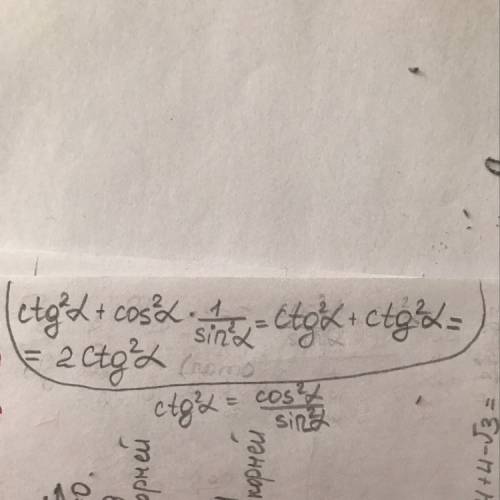 ctg²α + cos²α · 1/sin²α = ctg²α + ctg²α =
= 2ctg²α
ctg²α = cos²α/sin²α
корней
корней
+4-√3 =